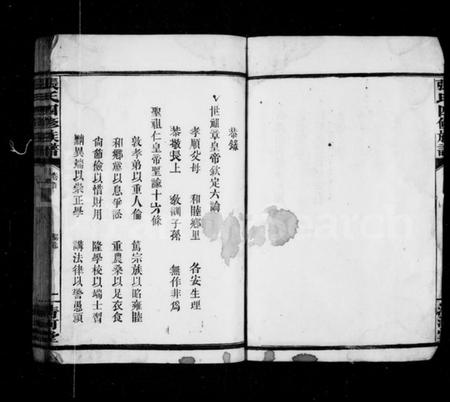 恭錄
世祖章皇帝欽定六諭
孝順父母　和睦鄉里　各安生理
恭敬長上　教訓子孫　無作非為
聖祖仁皇帝聖諭十六條
敦孝弟以重人倫　篤宗族以昭雍睦
和鄉黨以息爭訟　重農桑以足衣食
尚節儉以惜財用　隆學校以端士習
黜異端以崇正學　講法律以警愚頑
張氏四修族譜
清河堂
張氏四修族譜
清河堂